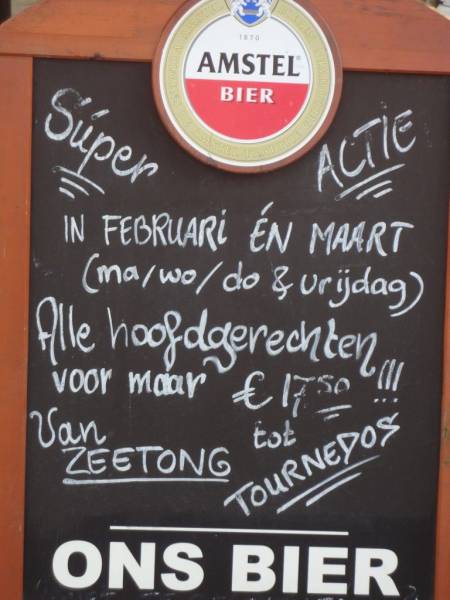 1870
AMSTEL®
BIER
Súper ACTIE
IN FEBRUARI ÉN MAART
(ma/wo/do & vrijdag)
Alle hoofdgerechten
voor maar € 17,50 !!!
Van ZEETONG tot TOURNEDOS
ONS BIER